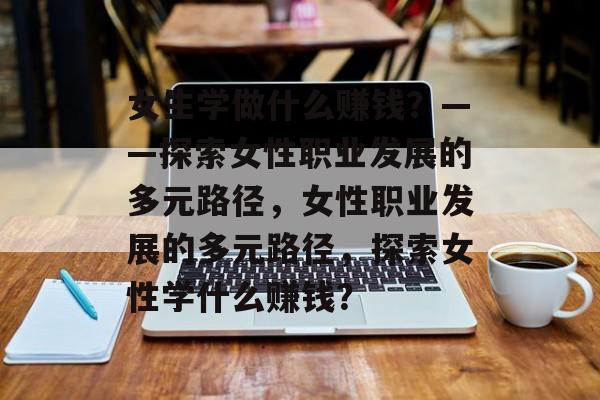 女生学做什么赚钱？—
—探索女性职业发展的
多元路径，女性职业发
展的多元路径，探索女
性学什么赚钱？